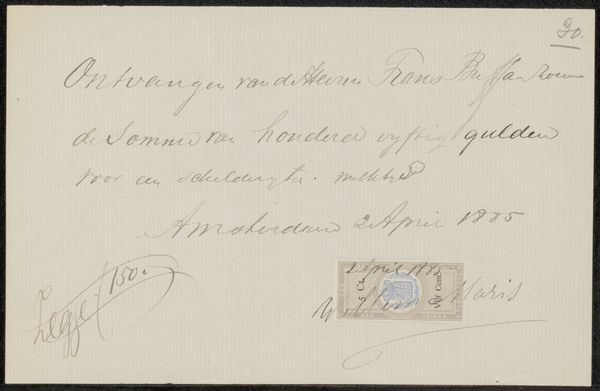 30.
Ontvangen van de Heeren Frans Buffa & Zoonen
de Somme van honderd vyftig gulden
voor een schilderytje.
Amsterdam 2 April 1885
2 April 1885
5 Ct. Vijf Cent
Willem Maris
Zegge ƒ 150.-